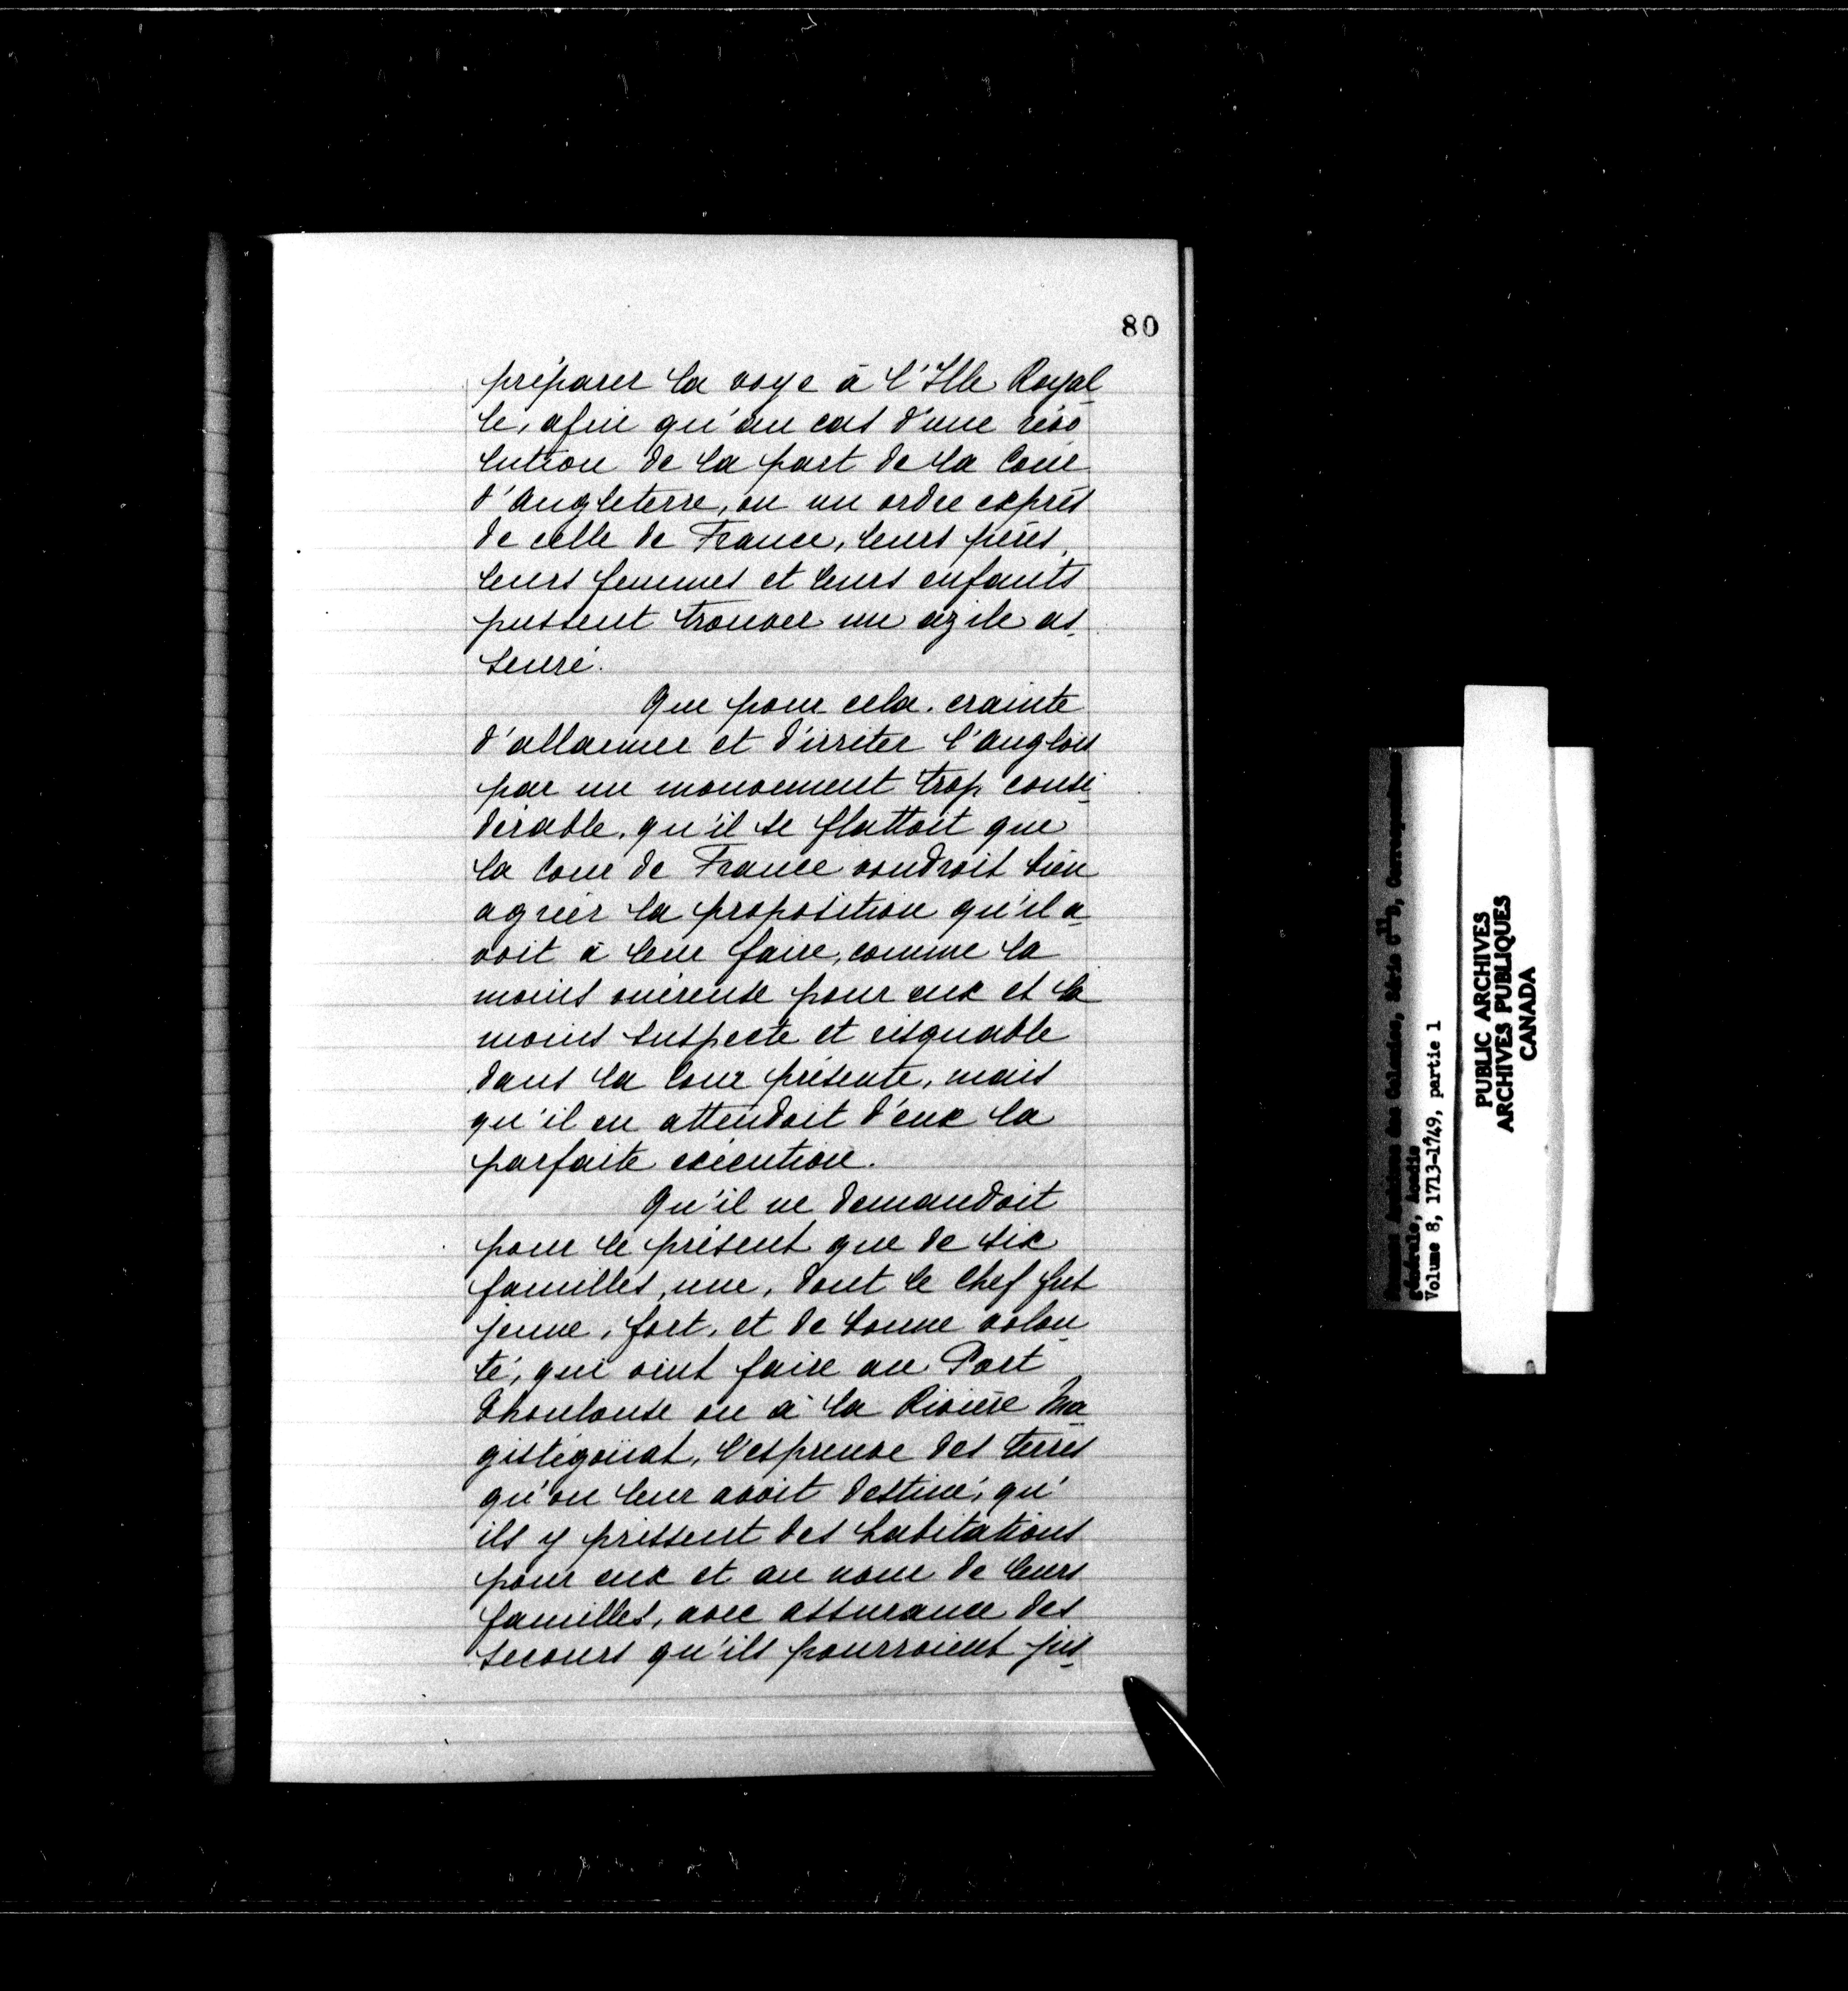 80
préparer la voye à l'Isle Royal-
le, afin qu'au cas d'une réso
lution de la part de la Cour
d'Angleterre, ou un ordre exprès
de celle de France, leurs pères,
leurs femmes et leurs enfants
pussent trouver un azile as-
seuré.
Que pour cela, crainte
d'allarmer et d'irriter l'Anglois
par un mouvement trop consi-
dérable, qu'il se flattoit que
la Cour de France voudroit bien
agréer la proposition qu'il a-
voit à leur faire, comme la
moins onéreuse pour eux et la
moins suspecte et risquable
dans la Cour présente, mais
qu'il en attendoit d'eux la
parfaite exécution.
Qu'il ne demandoit
pour le présent que de six
familles, une, dont le Chef fut
jeune, fort, et de bonne volon-
té, qui vint faire au Port
Thoulouse ou à la Rivière Ma-
gistégoüat, l'espreuve des terres
qu'on leur avoit destiné, qu'
ils y prissent des habitations
pour eux et au nom de leurs
familles, avec assurance des
secours qu'ils pourroient jus-
générale, Acadie
Volume 8, 1713-1749, partie 1
PUBLIC ARCHIVES
ARCHIVES PUBLIQUES
CANADA